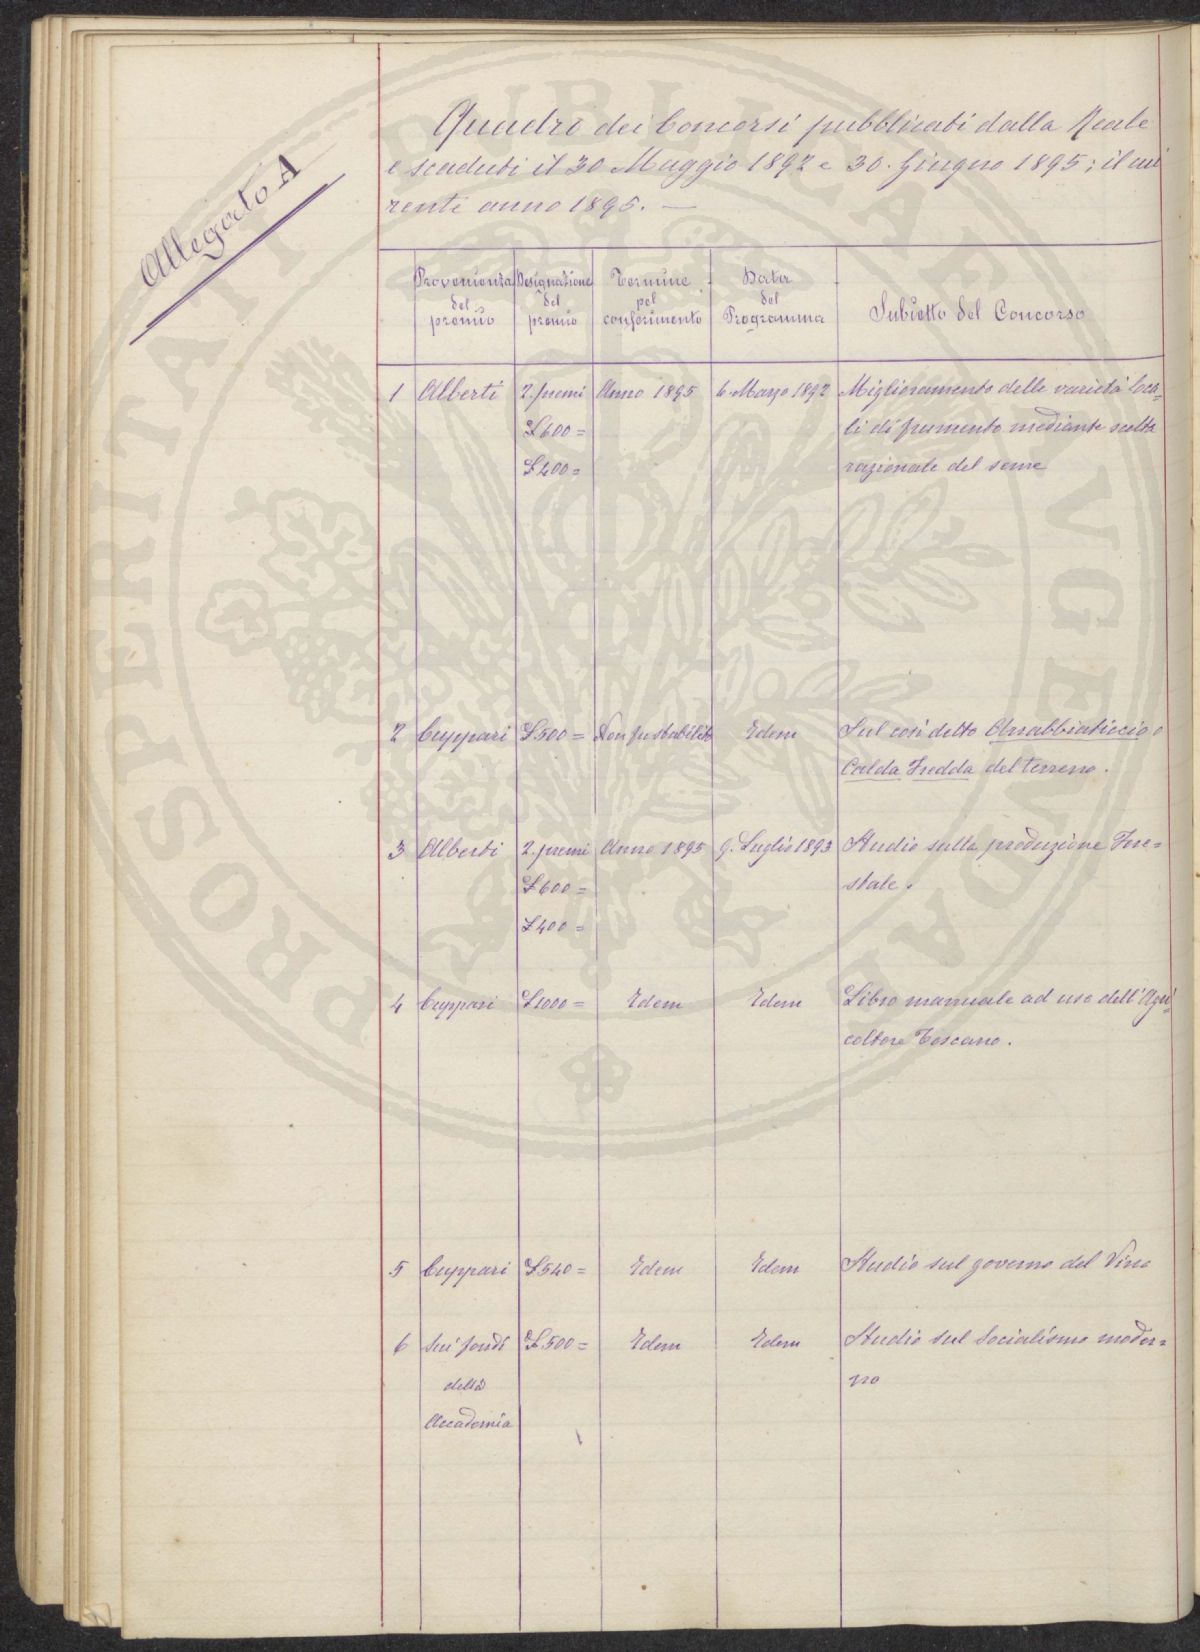 Allegato A
Quadri dei Concorsi pubblicati dalla Reale
e scaduti il 30 Maggio 1892 e 30. Giugno 1895; il cui
rente anno 1895. —
Provenienza del premio
Designazione del premio
Termine pel conferimento
Data del Programma
Subietto del Concorso
1 Alberti 2. premi Anno 1895 6. Marzo 1892 Miglioramento delle varietà loca=
£ 600= li di frumento mediante scelta
£ 400= razionale del seme
2 Cuppari £ 500= Non fu stabilito Idem Sul così detto Arrabbiaticcio o
Calda Fredda del terreno.
3 Alberti 2. premi Anno 1895 9. Luglio 1893 Studio sulla produzione Fore=
£ 600= stale.
£ 400=
4 Cuppari £ 1000= Idem Idem Libro manuale ad uso dell'Agri=
coltore Toscano.
5 Cuppari £ 540= Idem Idem Studio sul governo del Vino
6 Sui fondi £ 500= Idem Idem Studio sul Socialismo moder=
della no
Accademia
PROSPERITATI PUBLICAE AUGENDAE